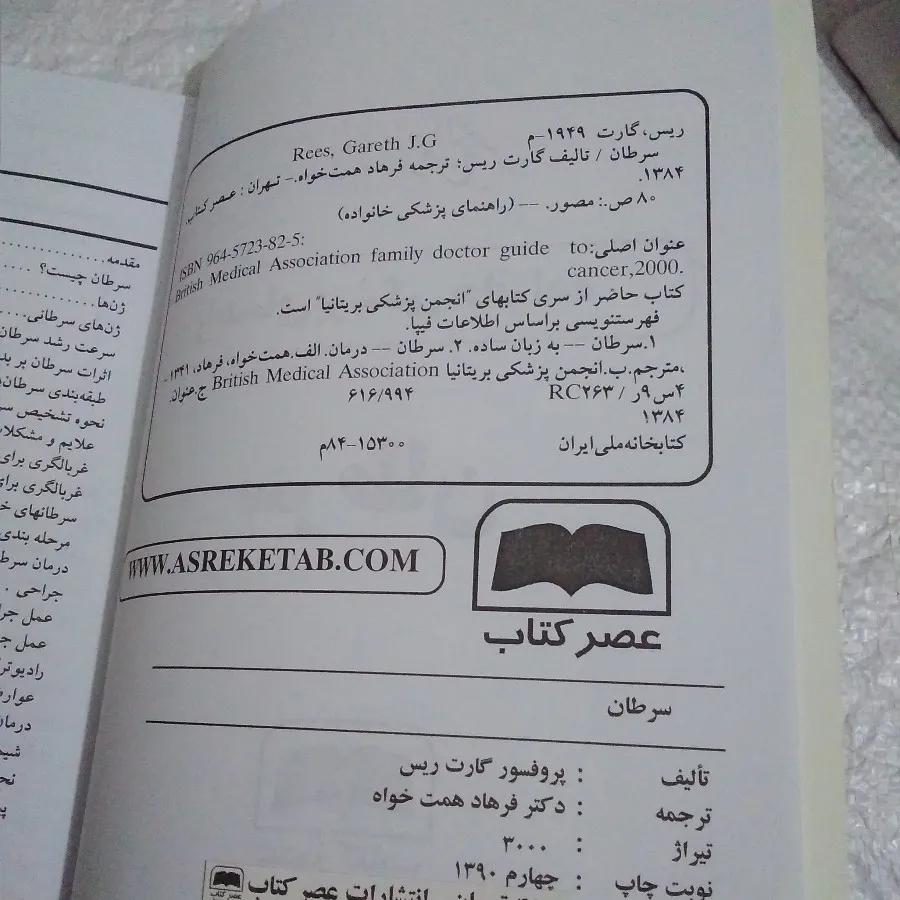 ریس، گارت ۱۹۴۹-م Rees, Gareth J.G
سرطان / تالیف گارت ریس؛ ترجمه فرهاد همت‌خواه.- تهران : عصر کتاب،
۱۳۸۴.
۸۰ ص.: مصور. -- (راهنمای پزشکی خانواده)
ISBN 964-5723-82-5:
عنوان اصلی: British Medical Association family doctor guide to
cancer,2000.
کتاب حاضر از سری کتابهای "انجمن پزشکی بریتانیا" است.
فهرستنویسی براساس اطلاعات فیپا.
۱.سرطان -- به زبان ساده. ۲. سرطان -- درمان. الف.همت‌خواه، فرهاد، ۱۳۴۱-
،مترجم.ب.انجمن پزشکی بریتانیا British Medical Association ج.عنوان.
۴س۹ر / RC۲۶۳ ۶۱۶/۹۹۴
۱۳۸۴
کتابخانه ملی ایران ۸۴-۱۵۳۰۰م
WWW.ASREKETAB.COM
عصر کتاب
سرطان
تألیف : پروفسور گارت ریس
ترجمه : دکتر فرهاد همت خواه
تیراژ : ۳۰۰۰
نوبت چاپ : چهارم ۱۳۹۰
انتشارات عصر کتاب
عصر کتاب
مقدمه
سرطان چیست؟
ژن‌ها
ژن‌های سرطانی
سرعت رشد سرطان
اثرات سرطان بر
طبقه‌بندی
نحوه تشخیص
علایم و
غربالگری برای
غربالگری برای
سرطانهای
مرحله بندی
درمان
جراحی
عمل
عمل
درمان